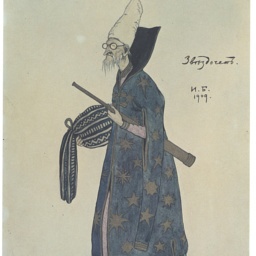 Звѣздочетъ.
И. Б.
1909.